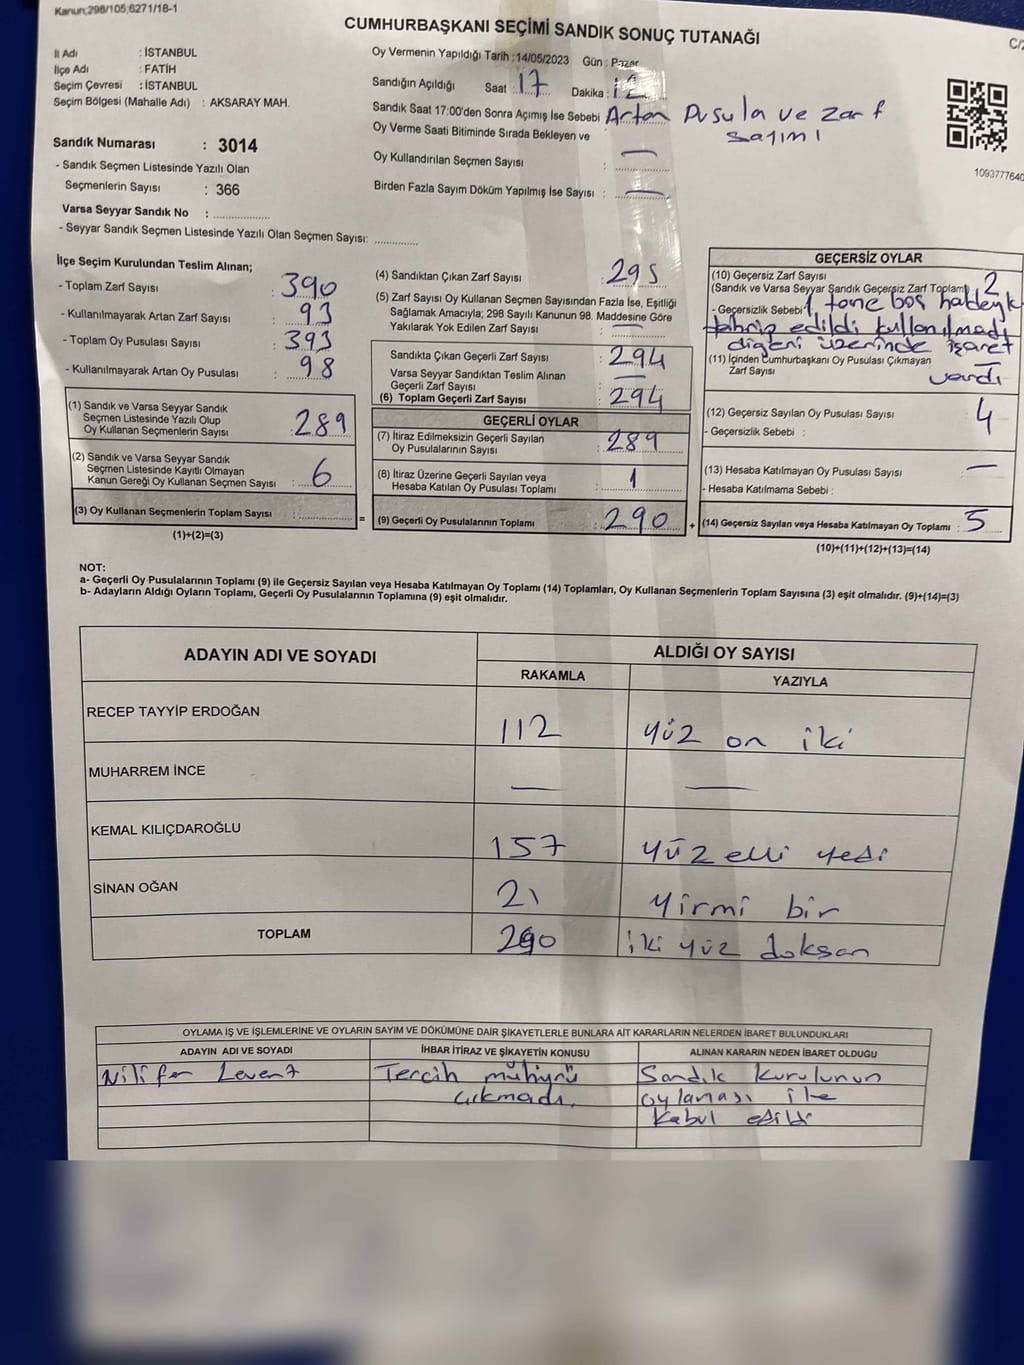 Kanun;298/105,6271/18-1
CUMHURBAŞKANI SEÇİMİ SANDIK SONUÇ TUTANAĞI
İl Adı : İSTANBUL
İlçe Adı : FATİH
Seçim Çevresi : İSTANBUL
Seçim Bölgesi (Mahalle Adı) : AKSARAY MAH.
Sandık Numarası : 3014
- Sandık Seçmen Listesinde Yazılı Olan
Seçmenlerin Sayısı : 366
Varsa Seyyar Sandık No : ..............
- Seyyar Sandık Seçmen Listesinde Yazılı Olan Seçmen Sayısı: ............
Oy Vermenin Yapıldığı Tarih : 14/05/2023 Gün : Pazar
Sandığın Açıldığı Saat : 17 Dakika : 12
Sandık Saat 17:00'den Sonra Açımış İse Sebebi Artan Pusula ve zarf
sayımı
Oy Verme Saati Bitiminde Sırada Bekleyen ve
Oy Kullandırılan Seçmen Sayısı : —
Birden Fazla Sayım Döküm Yapılmış İse Sayısı : —
1093777640
İlçe Seçim Kurulundan Teslim Alınan;
- Toplam Zarf Sayısı : 390
- Kullanılmayarak Artan Zarf Sayısı : 93
- Toplam Oy Pusulası Sayısı : 393
- Kullanılmayarak Artan Oy Pusulası : 98
(1) Sandık ve Varsa Seyyar Sandık
Seçmen Listesinde Yazılı Olup
Oy Kullanan Seçmenlerin Sayısı : 289
(2) Sandık ve Varsa Seyyar Sandık
Seçmen Listesinde Kayıtlı Olmayan
Kanun Gereği Oy Kullanan Seçmen Sayısı : 6
(3) Oy Kullanan Seçmenlerin Toplam Sayısı : ..............
(1)+(2)=(3)
(4) Sandıktan Çıkan Zarf Sayısı : 295
(5) Zarf Sayısı Oy Kullanan Seçmen Sayısından Fazla İse, Eşitliği
Sağlamak Amacıyla; 298 Sayılı Kanunun 98. Maddesine Göre
Yakılarak Yok Edilen Zarf Sayısı : —
Sandıkta Çıkan Geçerli Zarf Sayısı : 294
Varsa Seyyar Sandıktan Teslim Alınan
Geçerli Zarf Sayısı : —
(6) Toplam Geçerli Zarf Sayısı : 294
GEÇERLİ OYLAR
(7) İtiraz Edilmeksizin Geçerli Sayılan
Oy Pusulalarının Sayısı : 289
(8) İtiraz Üzerine Geçerli Sayılan veya
Hesaba Katılan Oy Pusulası Toplamı : 1
= (9) Geçerli Oy Pusulalarının Toplamı : 290
GEÇERSİZ OYLAR
(10) Geçersiz Zarf Sayısı
(Sandık ve Varsa Seyyar Sandık Geçersiz Zarf Toplamı) 2
- Geçersizlik Sebebi : 1 tane boş haldeyk
tahrip edildi kullanılmadı
diğeri üzerinde işaret
vardı
(11) İçinden Cumhurbaşkanı Oy Pusulası Çıkmayan
Zarf Sayısı —
(12) Geçersiz Sayılan Oy Pusulası Sayısı : 4
- Geçersizlik Sebebi :
(13) Hesaba Katılmayan Oy Pusulası Sayısı : —
- Hesaba Katılmama Sebebi :
+ (14) Geçersiz Sayılan veya Hesaba Katılmayan Oy Toplamı : 5
(10)+(11)+(12)+(13)=(14)
NOT:
a- Geçerli Oy Pusulalarının Toplamı (9) ile Geçersiz Sayılan veya Hesaba Katılmayan Oy Toplamı (14) Toplamları, Oy Kullanan Seçmenlerin Toplam Sayısına (3) eşit olmalıdır. (9)+(14)=(3)
b- Adayların Aldığı Oyların Toplamı, Geçerli Oy Pusulalarının Toplamına (9) eşit olmalıdır.
ADAYIN ADI VE SOYADI
ALDIĞI OY SAYISI
RAKAMLA YAZIYLA
RECEP TAYYİP ERDOĞAN 112 yüz on iki
MUHARREM İNCE — —
KEMAL KILIÇDAROĞLU 157 yüz elli yedi
SİNAN OĞAN 21 yirmi bir
TOPLAM 290 iki yüz doksan
OYLAMA İŞ VE İŞLEMLERİNE VE OYLARIN SAYIM VE DÖKÜMÜNE DAİR ŞİKAYETLERLE BUNLARA AİT KARARLARIN NELERDEN İBARET BULUNDUKLARI
ADAYIN ADI VE SOYADI İHBAR İTİRAZ VE ŞİKAYETİN KONUSU ALINAN KARARIN NEDEN İBARET OLDUĞU
Nilifer Levent Tercih mühürü Sandık kurulunun
çıkmadı. oylaması ile
kabul edildi